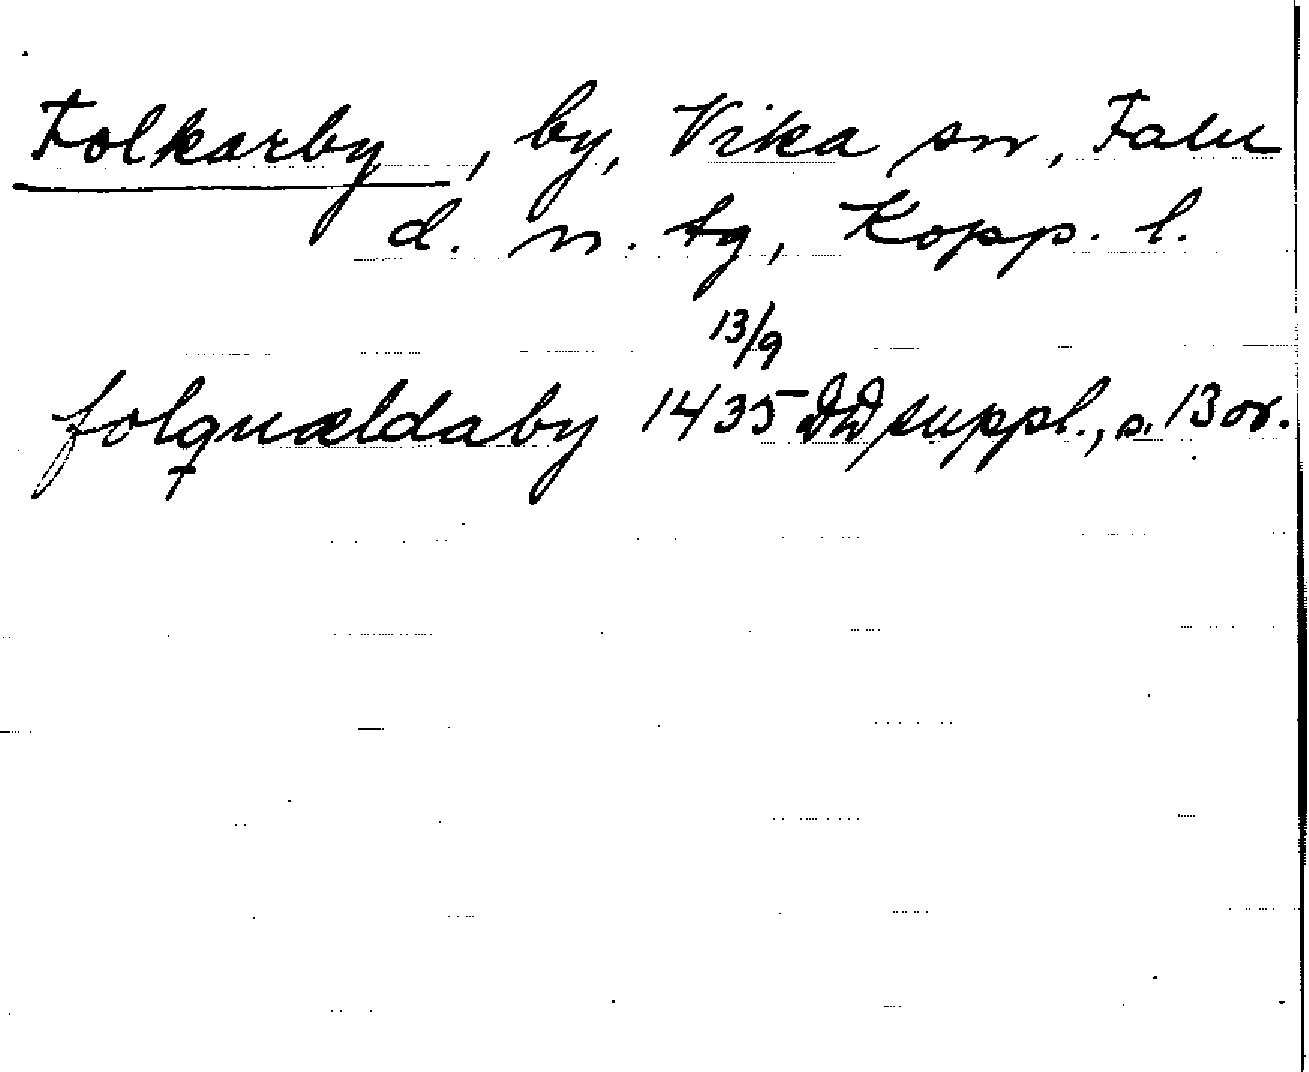 Folkarby, by, Vika sn, Falu
d. n. tg, Kopp. l.
13/9
folquældaby 1435 DD suppl., s. 13 or.